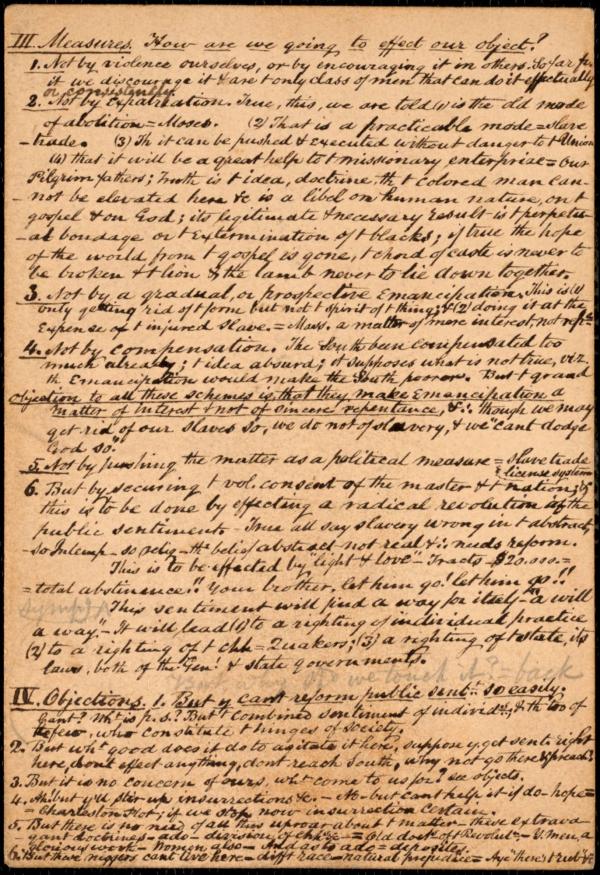 III. Measures. How are we going to effect our object?
1. Not by violence ourselves, or by encouraging it in others. So far fr.
it we discourage it & are t only class of men that can do it effectually
or consistently.
2. Not by Expatriation. True, this, we are told (1) is the old mode
of abolition = Moses. (2) That is a practicable mode = slave
-trade. (3) Th it can be pushed & executed without danger to t Union
(4) that it will be a great help to t missionary enterprise = Our
Pilgrim fathers; Truth is t idea, doctrine, tht t colored man can-
-not be elevated here &c is a libel on human nature, on t
gospel & on God; its legitimate & necessary result is t perpetu-
-al bondage or t Extermination of t blacks; if true the hope
of the world from t gospel is gone, t chord of caste is never to
be broken & t lion & the lamb never to lie down together.
3. Not by a gradual, or prospective Emancipation. This is (1)
only getting rid of t form but not t spirit of t thing; & (2) doing it at the
Expense of t injured slave. = Mass. a matter of mere interest, not
4. Not by compensation. The South been compensated too
much already; t idea absurd; it supposes what is not true, viz.
th Emancipation would make the South poorer. But t grand
objection to all these schemes is, that they make Emancipation a
matter of interest & not of sincere repentance, &∴ though we may
get rid of our slaves so, we do not of slavery, & we "cant dodge
God so."
5. Not by pushing the matter as a political measure = slave trade
& license system
6. But by securing t vol. consent of the master & t nation; &
this is to be done by effecting a radical revolution of the
public sentiment. - True all say slavery wrong in t abstract,
- so Intemp. - so relig - tht belief abstract - not real & ∴ needs reform.
This is to be effected by "light & love" - Tracts - $20.000. =
= total abstinence!! Your brother, let him go! let him go!!
This sentiment will find a way for itself "a will
a way." - It will lead (1) to a righting of individual practice
(2) to a righting of t chh = Quakers; (3) a righting of t state, its
laws, both of the Gen'l & state governments.
IV. Objections. 1. But y can't reform public sentt. so easily;
Cant? Wht is p. s.? But t combined sentiment of individls, & th too of
the few, who constitute t hinges of society.
2. But wht good does it do to agitate it here, suppose y get sents right
here, dont effect anything, dont reach South, why not go there & preach?
3. But it is no concern of ours, wht come to us for? see objects.
4. Ah! but y'll stir up insurrections &c. - No - but cant help it if do - hope =
= Charleston Plot; if we stop more insurrection certain.
5. But there is no need of all this uproar about t matter - these extrava-
-gant doctrines - ado - division of chhs &c = Old dock of t Revolutn - Y. men, a
glorious work - Women also - And as to ado = deposites.
6. But these niggers cant live here - difft race - natural prejudice = Aye "there's t rub" &c